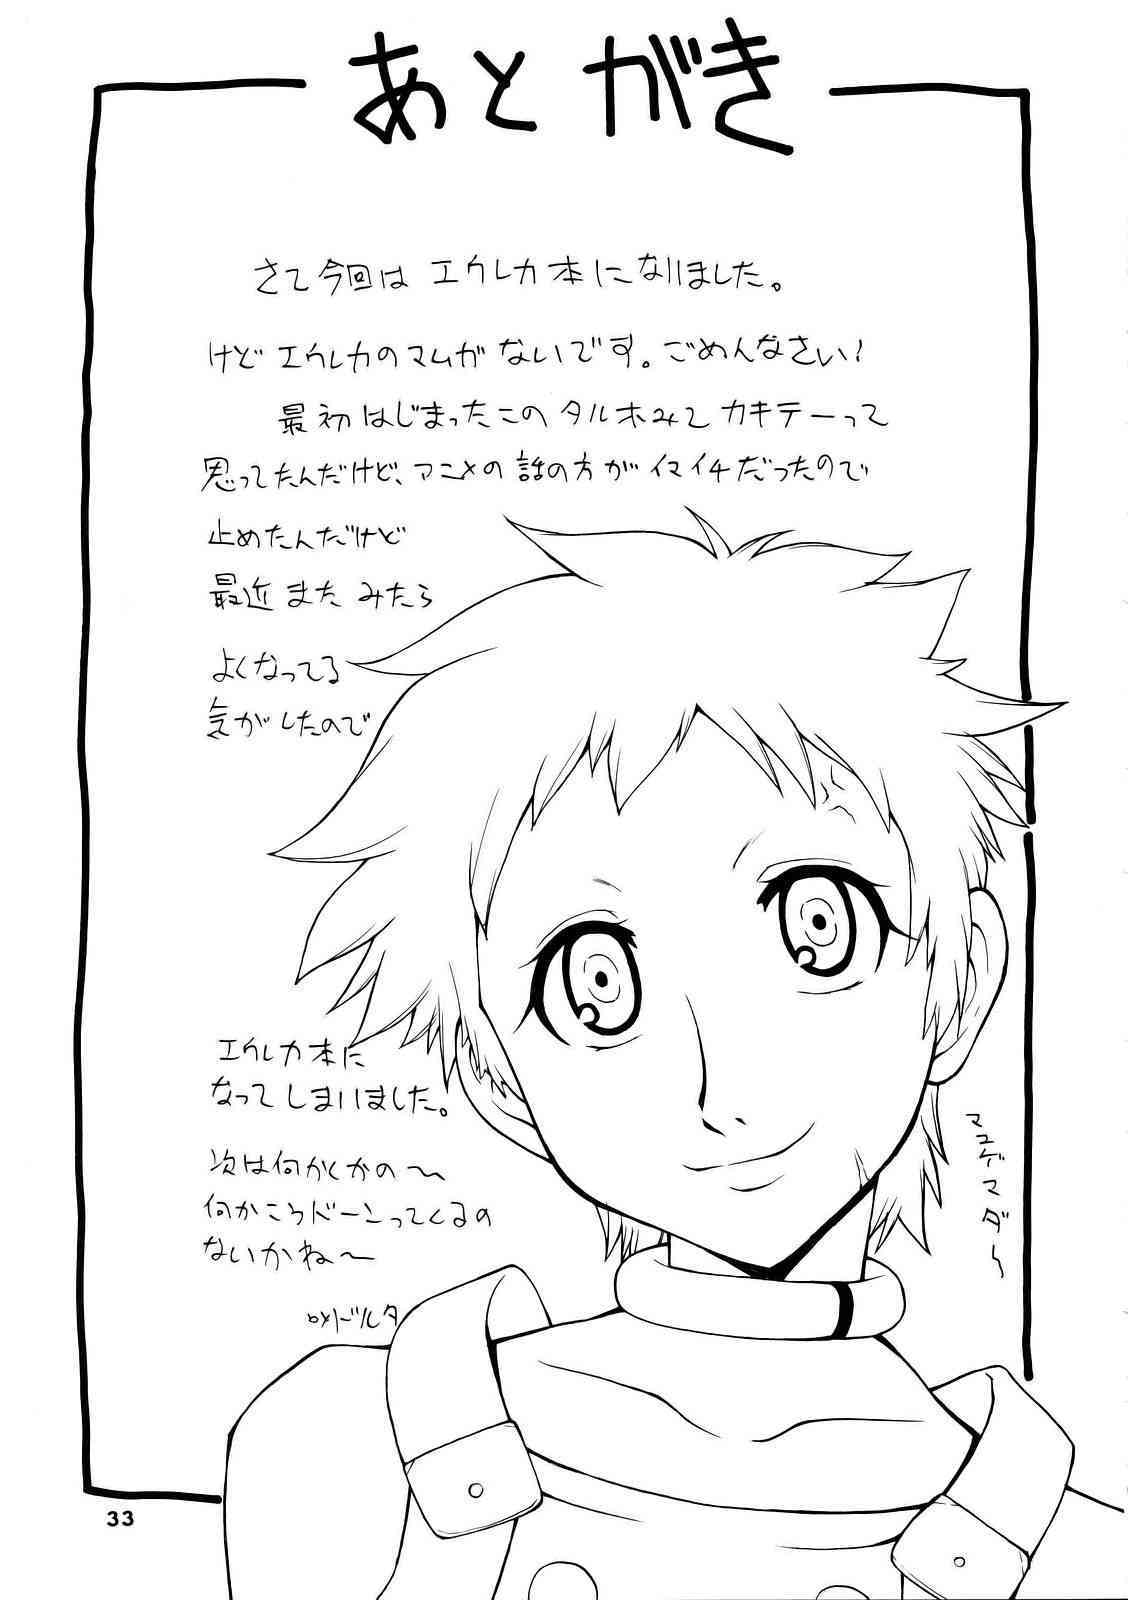 あとがき
さて今回は エウレカ本になりました。
けど エウレカのマムガ ないです。ごめんなさい!
最初 はじまったこの タルホみて カキテーって
思ってたんだけど、アニメの 話の方が イマイチだったので
止めたんだけど
最近 また みたら
よくなってる
気が したので
エウレカ本に
なって しまいました。
次は何かくかの〜
何かころドーンってくるの
ないかね〜
マユゲマダ〜
33